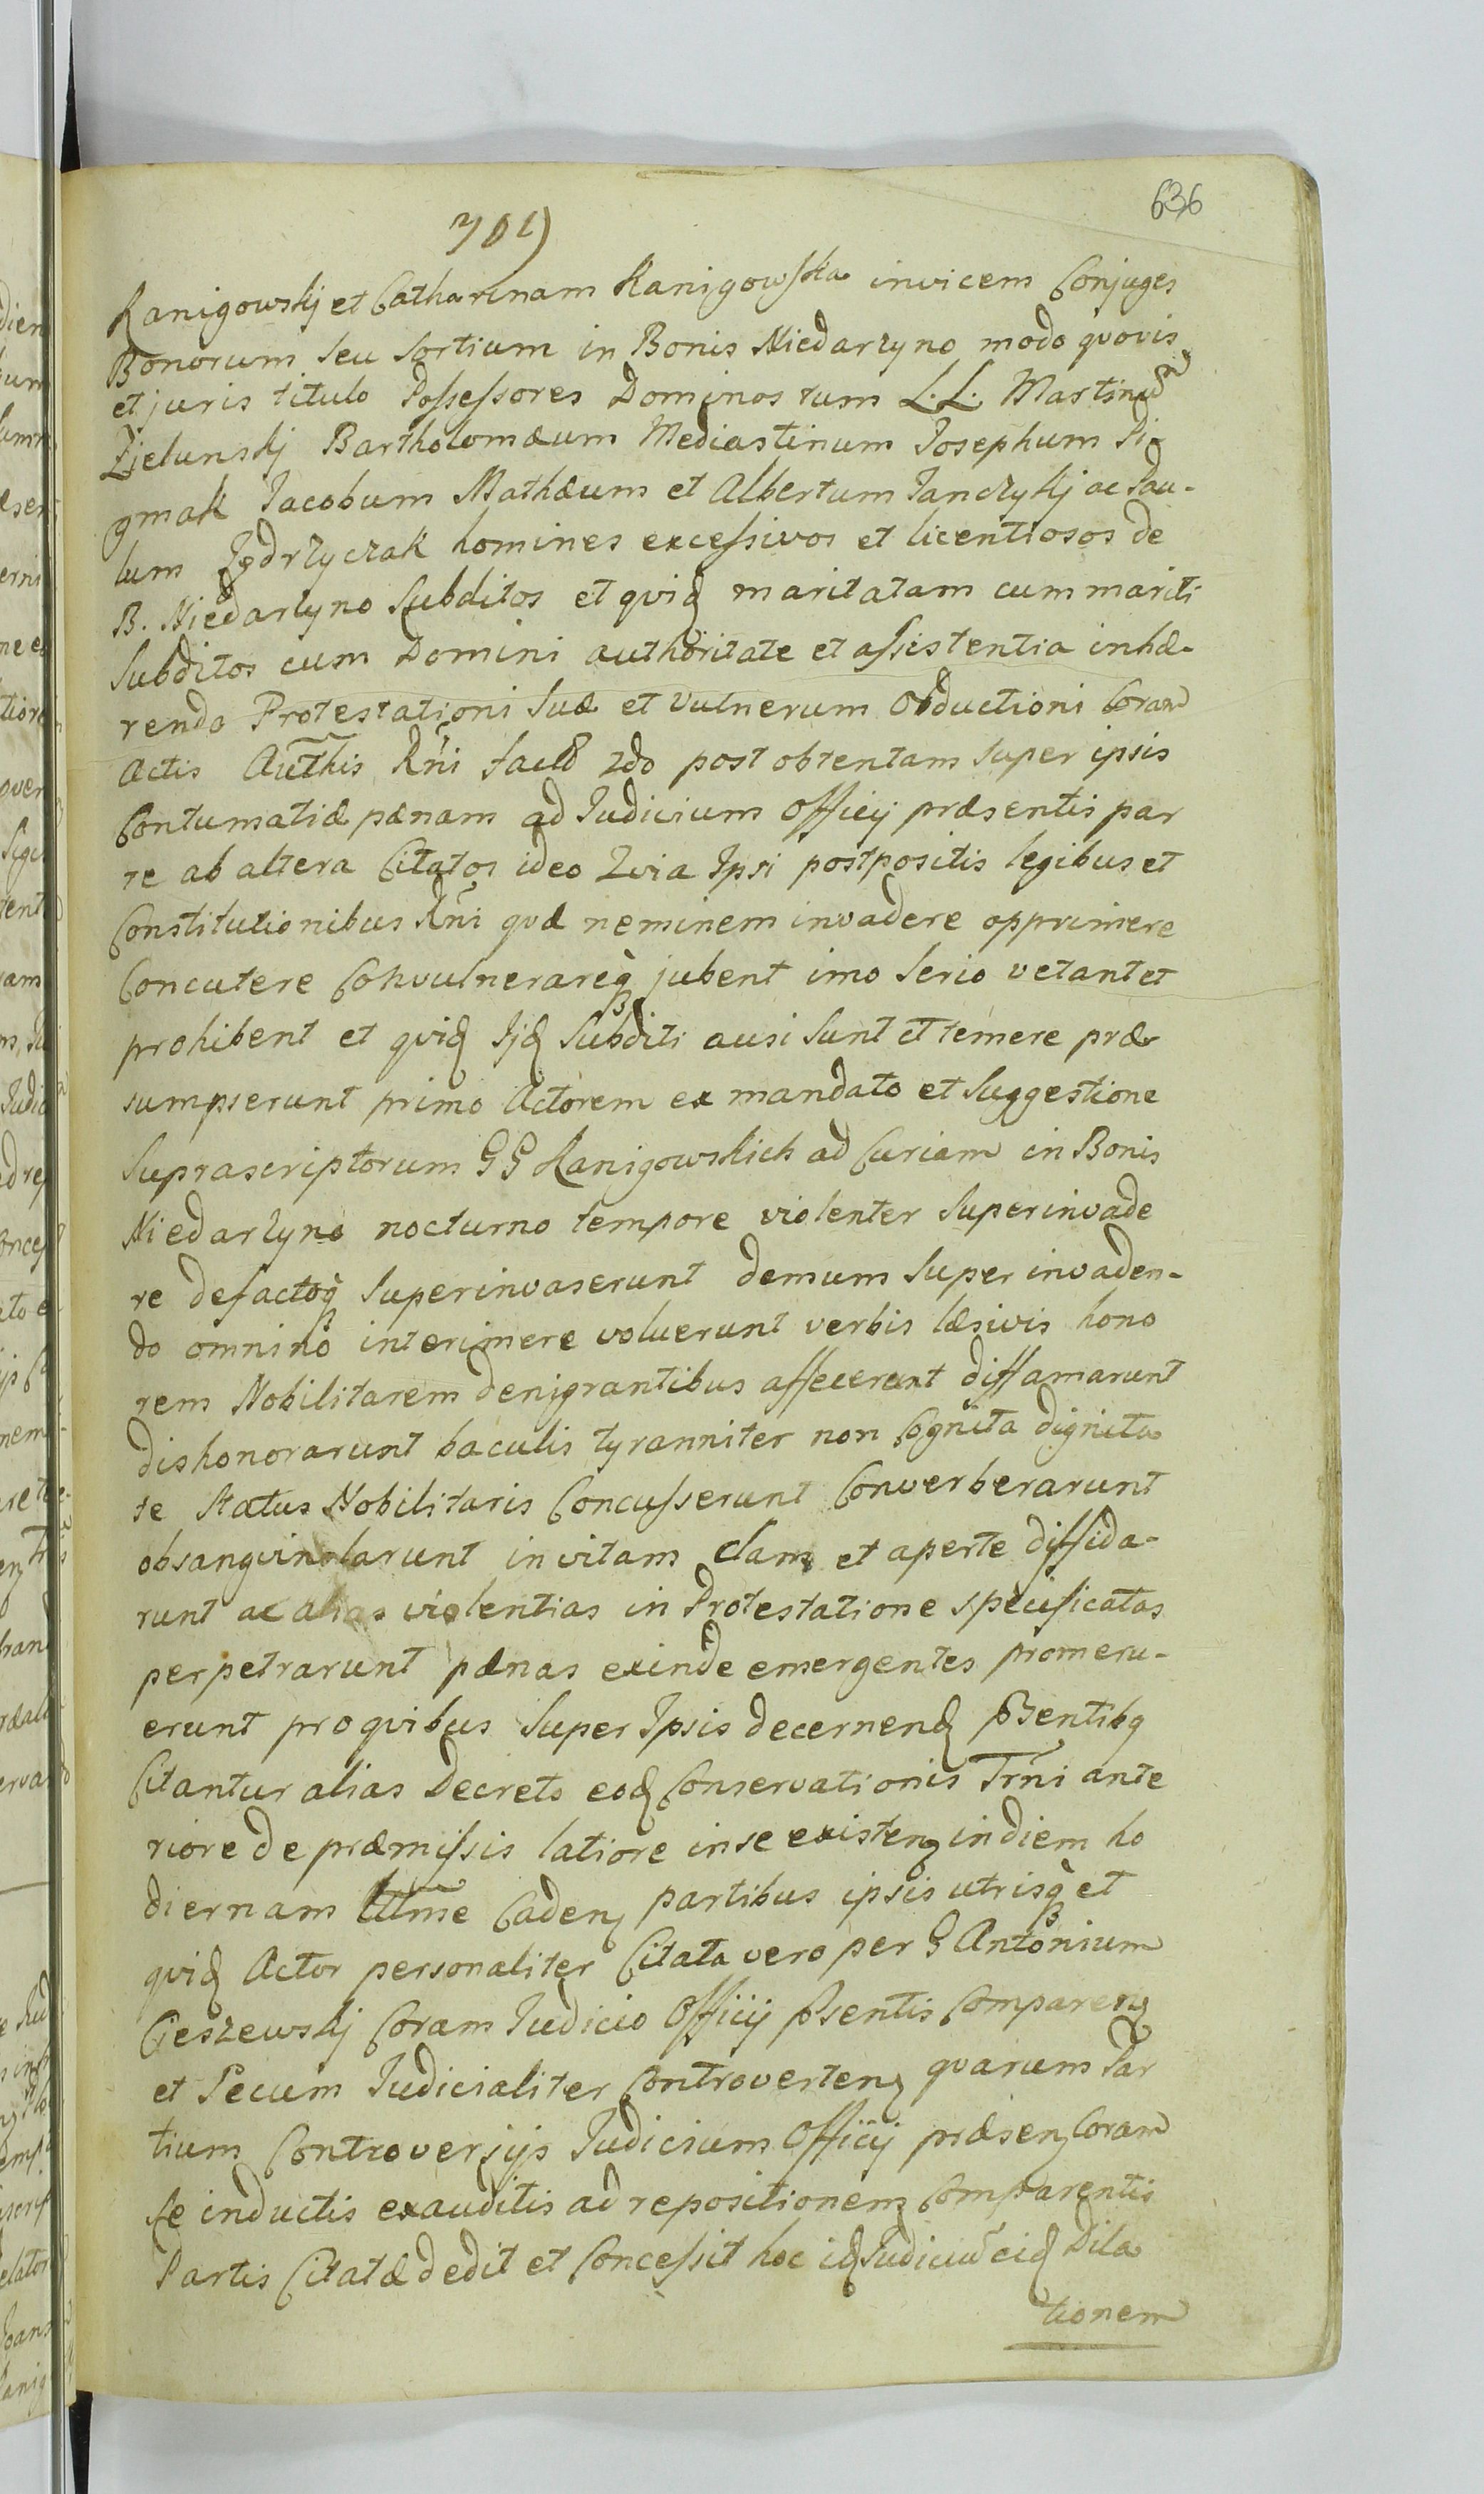 636
701)
Kanigowskj et Catharinam Kanigowska invicem Conjuges
Bonorum seu sortium in Bonis Niedarzyno modo quovis
et juris titulo Possessores Dominos tum L. L. Martinum
Zielunskj Bartholomæum Mediastinum Josephum Pi-
gmak Jacobum Mathæum et Albertum Janczykj ac Pau-
lum Jędrzyczak homines excessivos et licentiosos de
B. Niedarzyno Subditos et quid maritatam cum mariti
Subditos cum Domini authoritate et assistentia inhæ-
rendo Protestationi suæ et vulnerum obductioni Coram
Actis Authis Rñi 2do post obtentam super ipsis
Contumatiæ pænam ad Judicium Officij præsentis par
te ab altera Citatos ideo Quia Ipsi postpositis legibus et
Constitutionibus Rñi quæ neminem invadere opprimere
Concutere Convulnerareq jubent imo serio vetant et
prohibent et quid Ijd Subditi ausi sunt et temere præ-
sumpserunt primo Actorem ex mandato et suggestione
Suprascriptorum G G Kanigowskich ad Curiam in Bonis
Niedarzyno nocturno tempore violenter superinvade
re defactoq superinvaserunt demum superinvaden-
do omnino interimere voluerunt verbis læsivis hono
rem Nobilitarem denigrantibus affecerunt diffamarunt
dishonorarunt baculis tyranniter non Cognita dignita
te status Nobilitaris Concusserunt Converberarunt
obsangvinolarunt in vitam clam et aperte diffida-
runt ac alias violentias in Protestatione specificatas
perpetrarunt pænas exinde emergentes promeru-
erunt pro quibus super Ipsis decernend pßentibq
Citantur alias Decreto eod Conservationis Trñi ante
riore de præmissis latiore in se existen in diem ho
diernam Ultme Caden partibus ipsis utrisq et
quid Actor personaliter Citata vero per G Antonium
Cieszewskj Coram Judicio Officij pßentis Comparen
et Secum Judicialiter Controverten quarum Par
tium Controversijs Judicium Officij præsen Coram
se inductis exauditis ad repositionem Comparentis
Partis Citatæ dedit et Concessit hoc id Judiciũ eid Dila
tionem